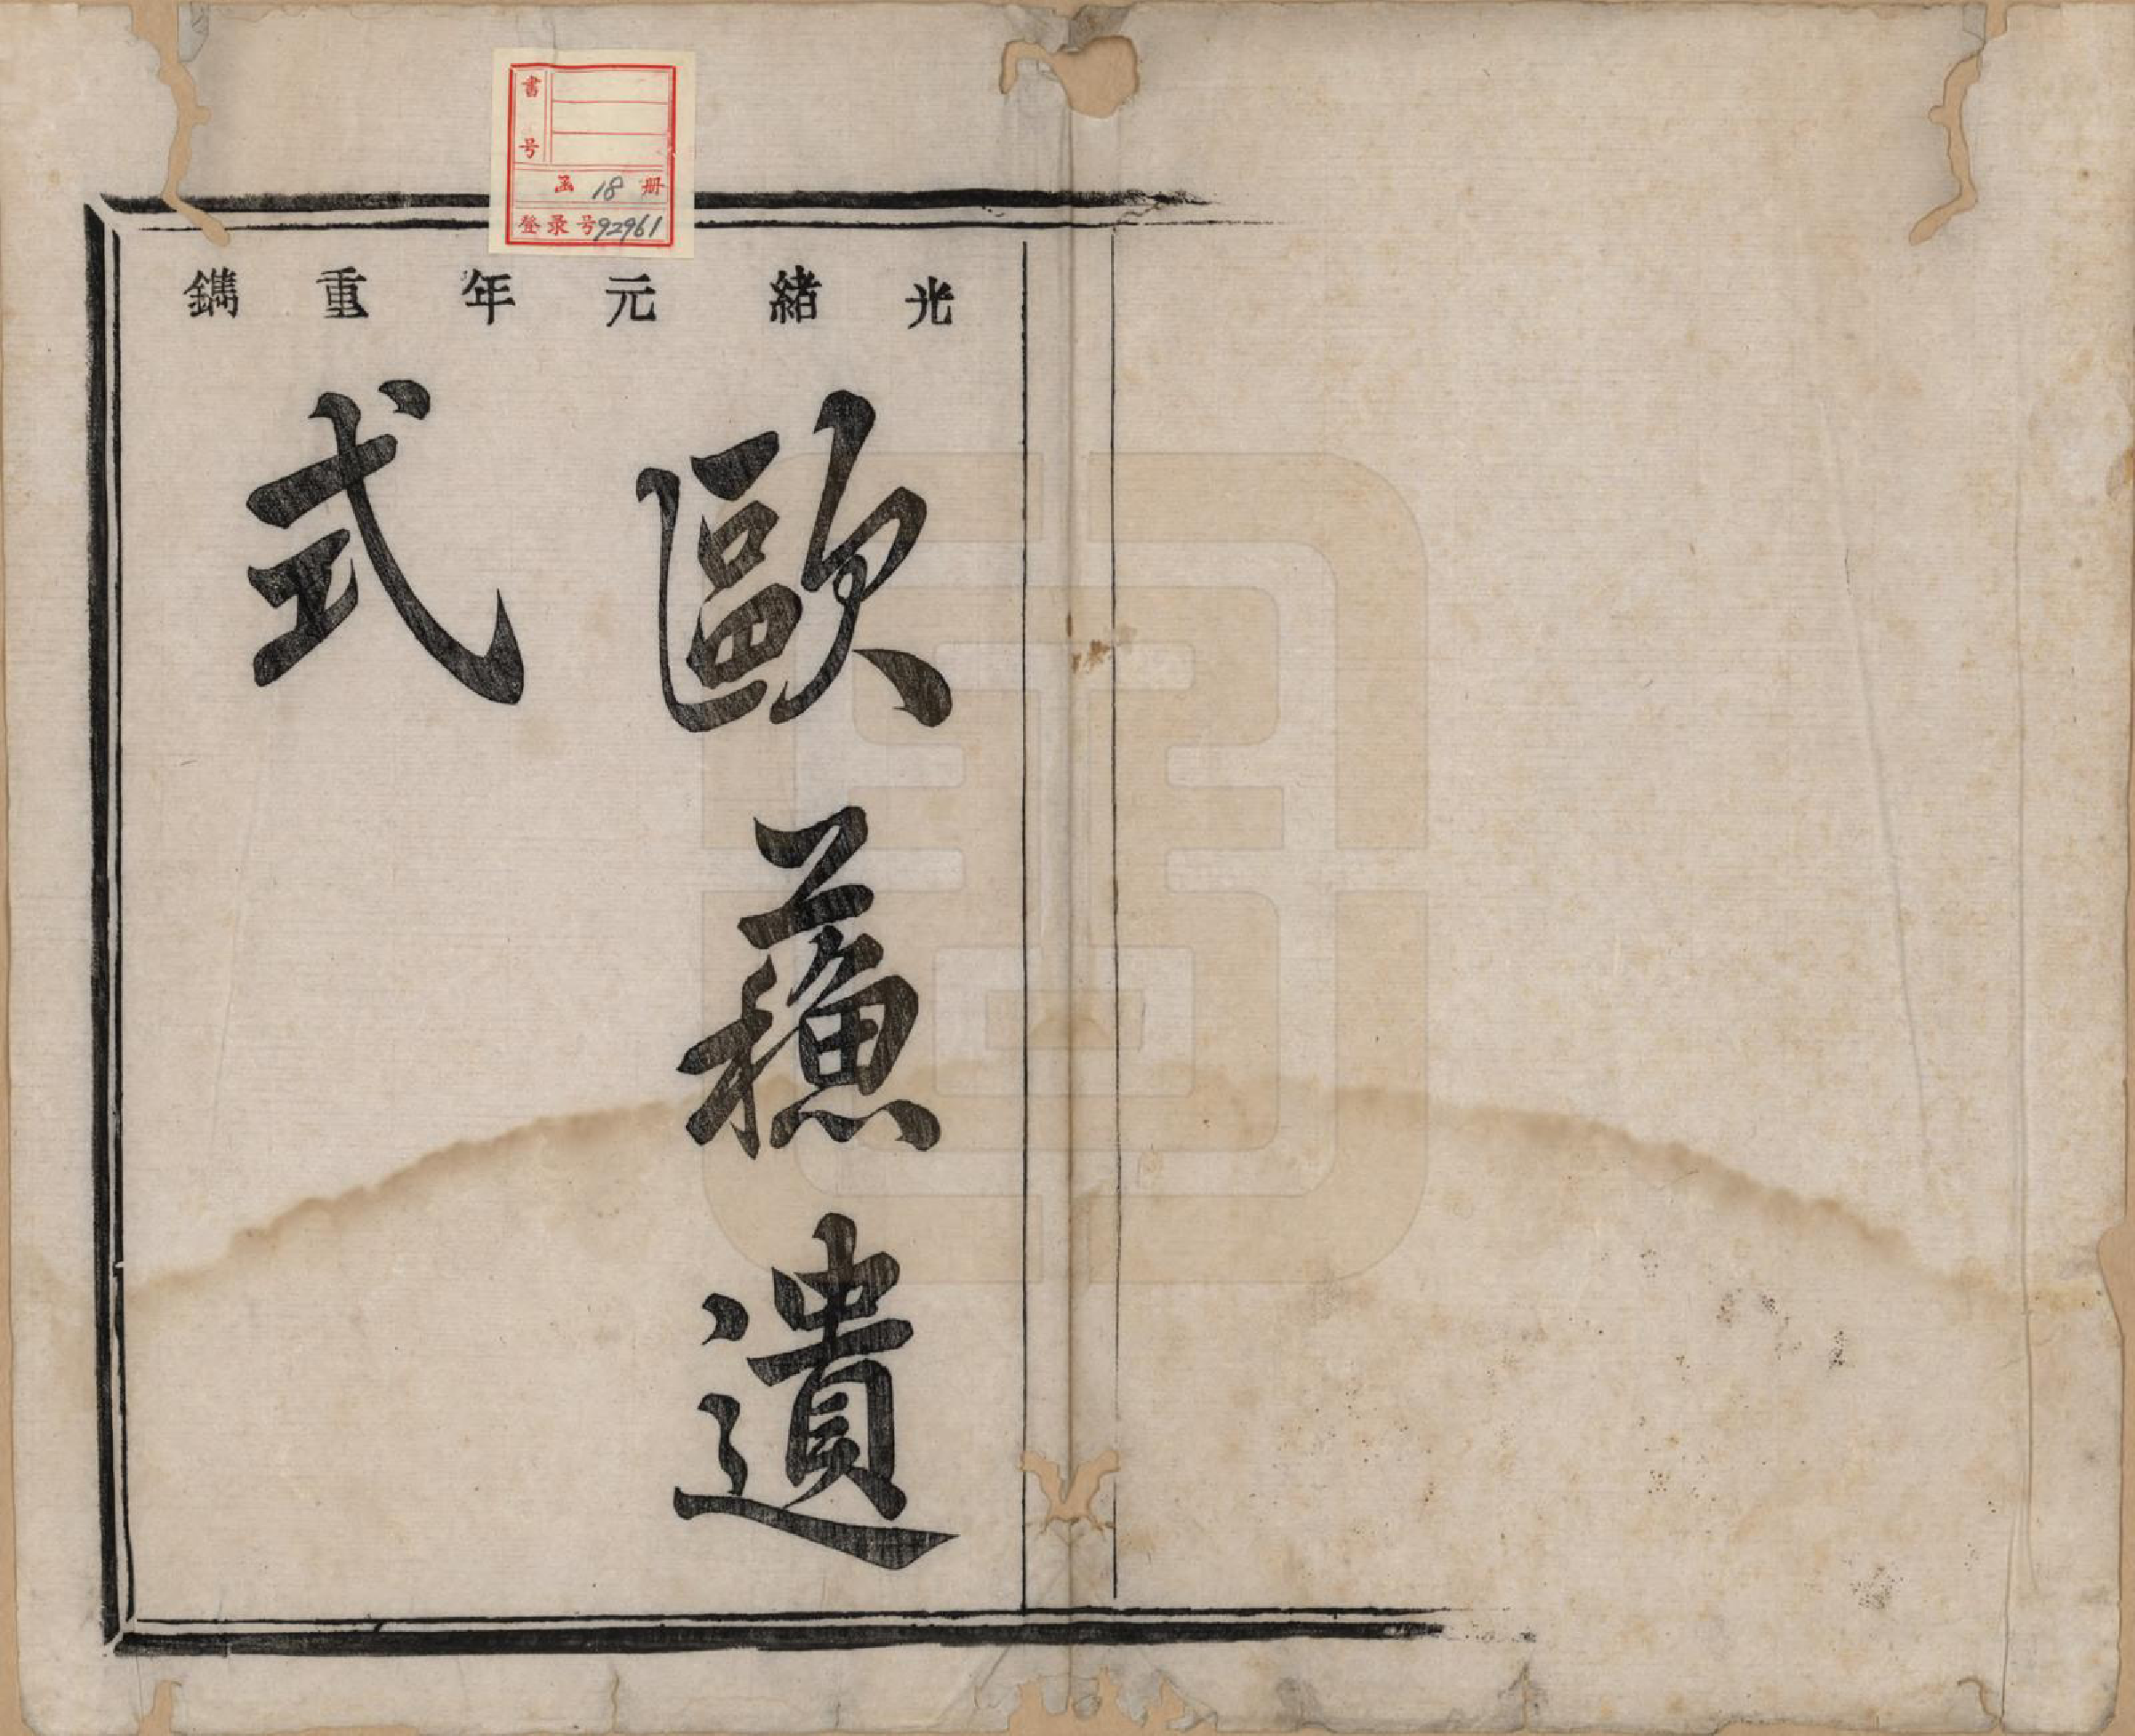 光緒元年重鐫
歐蘓遺
式
書号
函 18 册
登录号92961